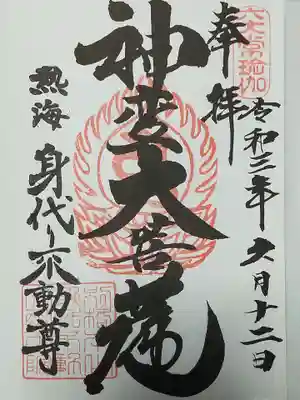 奉拝
令和三年六月十二日
神変大菩薩
熱海 身代り不動尊
六大常瑜伽